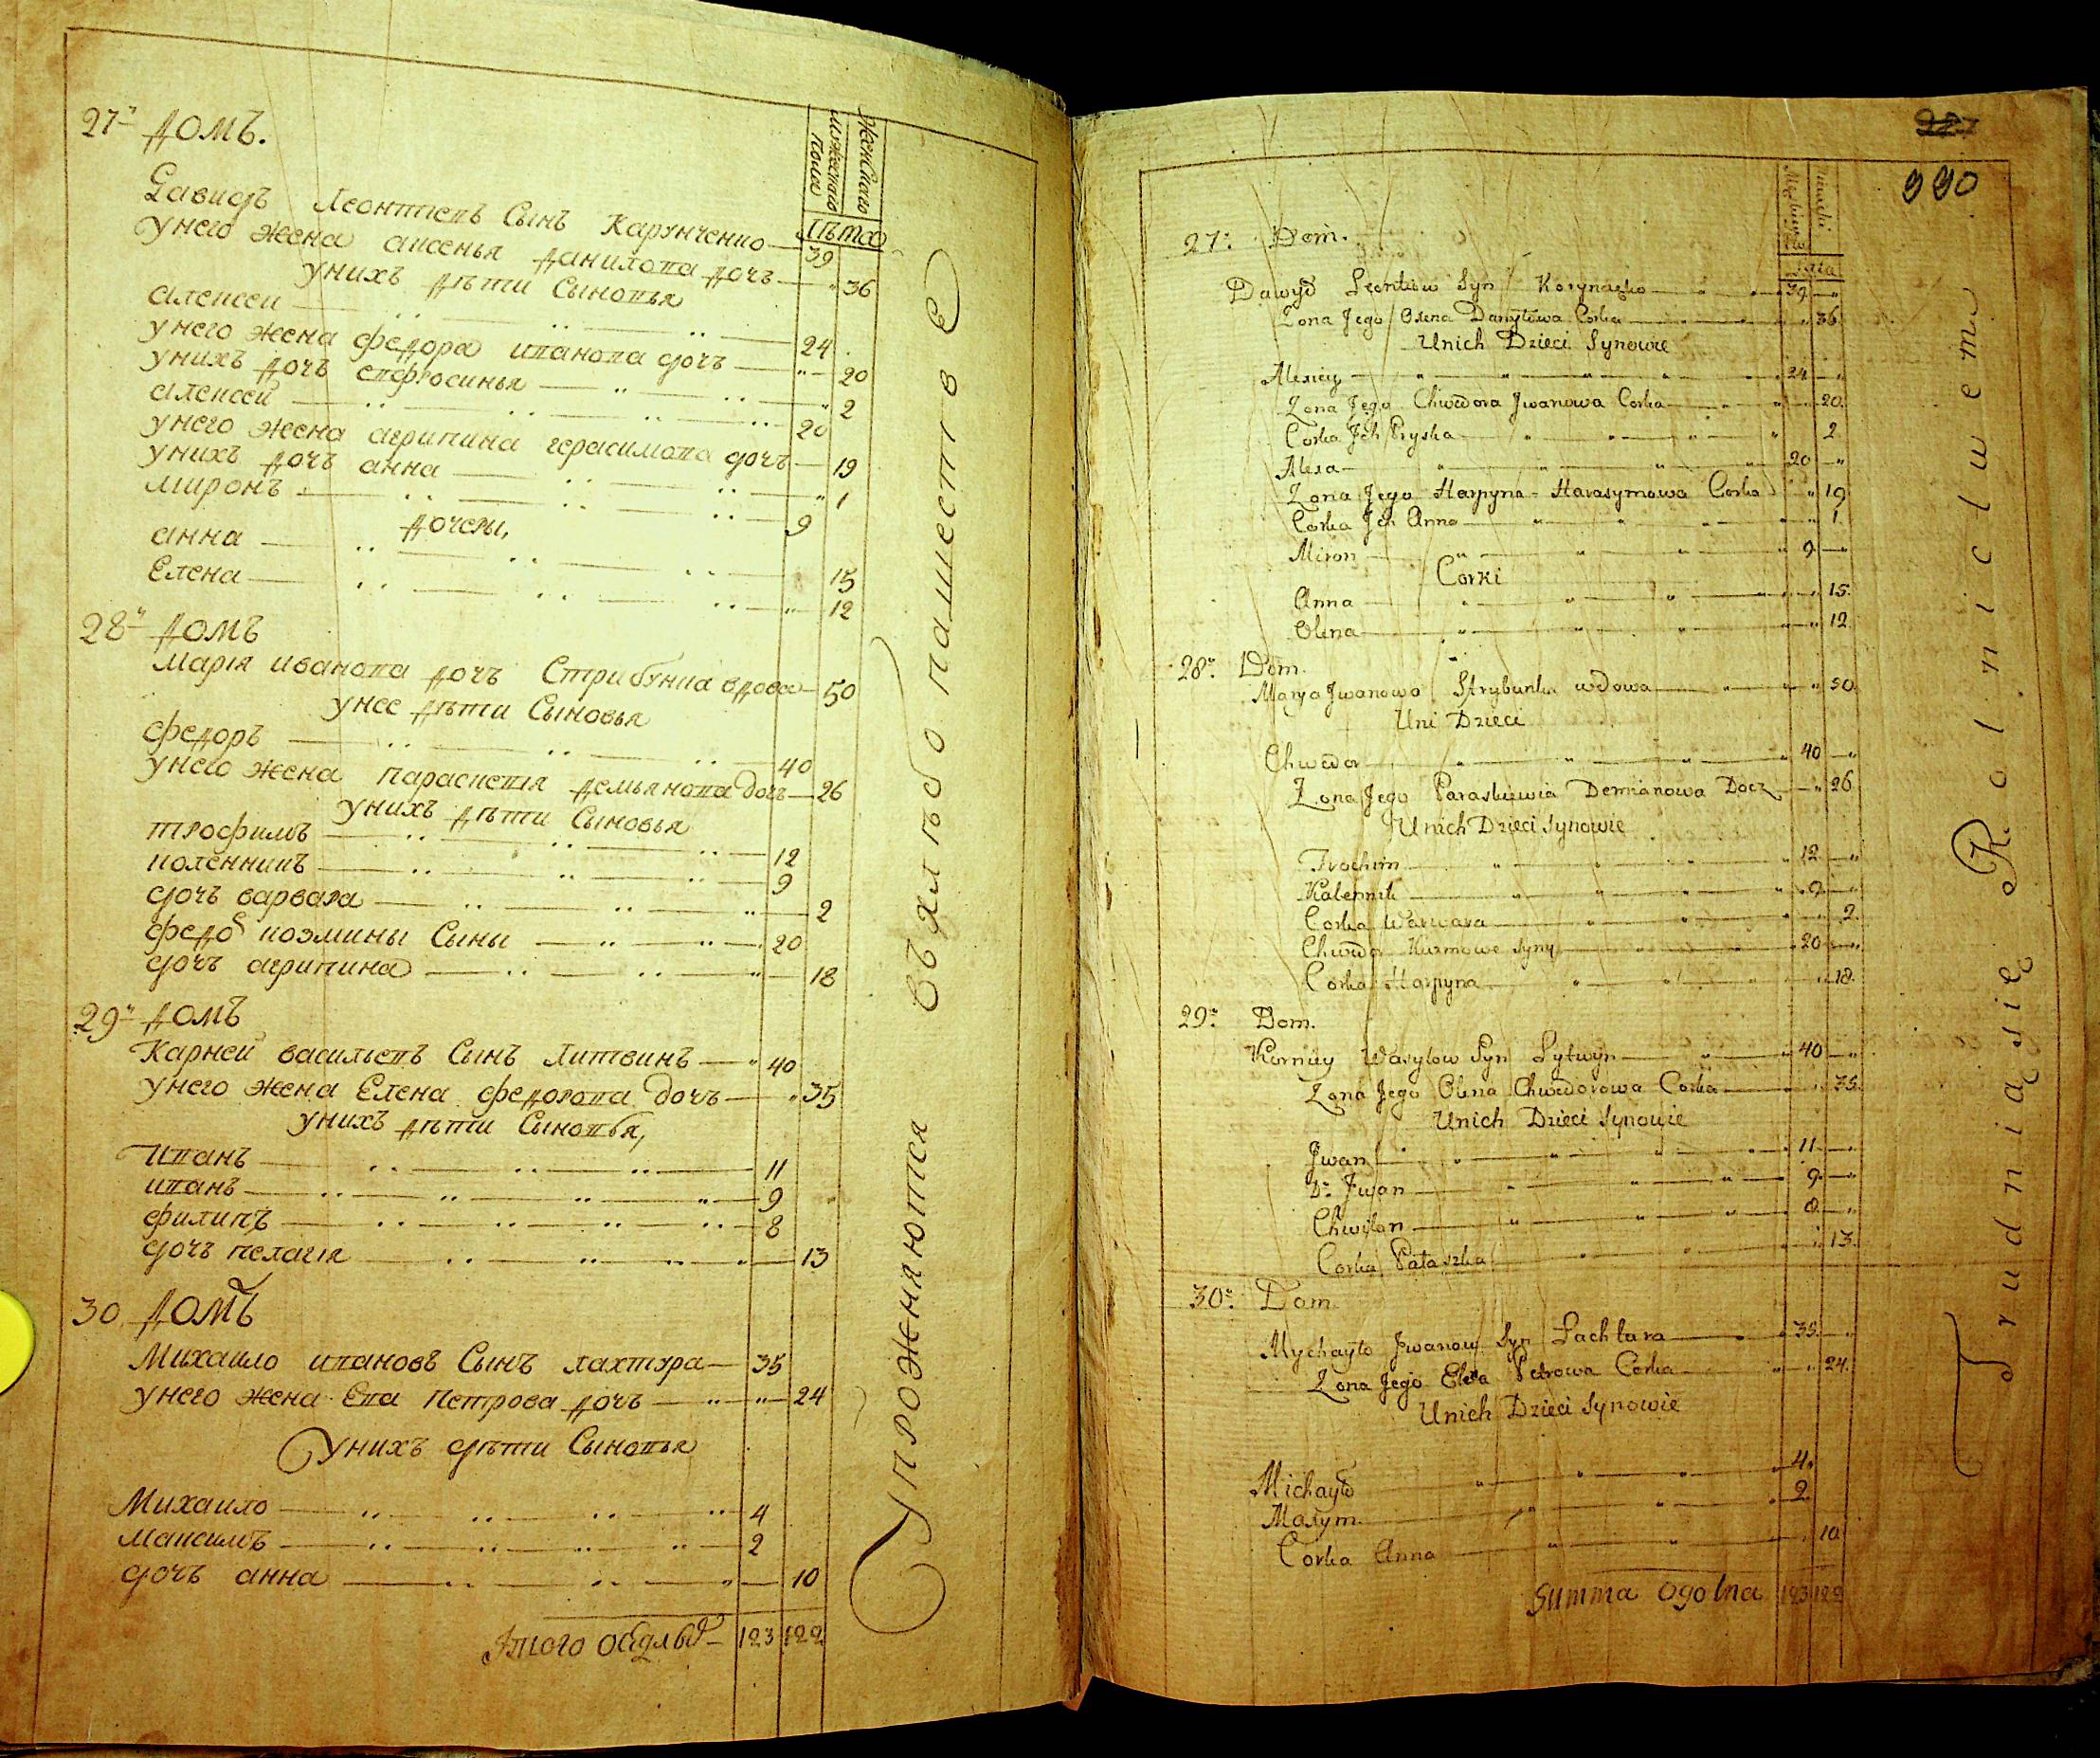 27й домъ.
женскаго
мужескаго
пола
лѣта
Давидъ Леонтиевъ Сынъ Карунченко 39
у него жена аксенья данилова дочь 36
у нихъ дѣти Сыновья
алексеи 24
у него жена федора иванова дочь 20
у нихъ дочь ефросинья 2
алексей 20
у него жена агрипина герасимова дочь 19
у нихъ дочь анна 1
миронъ 9
дочеры,
анна 15
Елена 12
28й домъ
Марія иванова дочь Стрибунка вдова 50
у нее дѣти Сыновья
федоръ 40
у него жена параскевия демьянова дочь 26
у нихъ дѣти Сыновья
трофимъ 12
каленникъ 9
дочь варвара 2
федо козмины Сыны 20
дочь агрипина 18
29й домъ
Карней васильевъ Сынъ Литвинъ 40
у него жена Елена федорова дочь 35
у нихъ дѣти Сыновья,
Иванъ 11
иванъ 9
филипъ 8
дочь пелагія 13
30 домъ
Михаило ивановъ Сынъ лахтура 35
у него жена Ева Петрова дочь 24
у нихъ дѣти Сыновья
Михаило 4
максимъ 2
дочь анна 10
Итого 123 122
Упрожняются въ хлѣбопашестве
990
27: Dom.
Lata
Dawyd Leontiow Syn 39
Zona Jego Oxena Danyłowa Corka 36
Unich Dzieci Synowie
Alexiey 24
Zona Jego Chwedora Jwanowa Corka 20
Corka Jch Pryska 2
Alexa 20
Zona Jego Harpyna Harasymowa Corka 19
Corka Jch Anna 1
Miron 9
Corki
Anna 15
Olena 12
28: Dom.
Marya Jwanowa Strybunka wdowa 50
Uni Dzieci
Chwedor 40
Zona Jego Paraskiewia Demianowa Docz 26
Unich Dzieci Synowie
Trochim 12
Kalennik 9
Corka Warwara 2
Chwedor Kuzmowe Syny 20
Corka Harpyna 18
29: Dom.
Korniey Wasylow Syn Lytwyn 40
Zona Jego Olena Chwedorowa Corka 35
Unich Dzieci Synowie
Jwan 11
Do Jwan 9
Chwilan 8
Corka Pałaszka 13
30: Dom
Mychayło Jwanow Syn Lachtura 35
Zona Jego Petrowa Corka 24
Unich Dzieci Synowie
Michayło 4
Maxym 2
Corka Anna 10
Summa ogolna 123 122
Trudnią się Rolnictwem